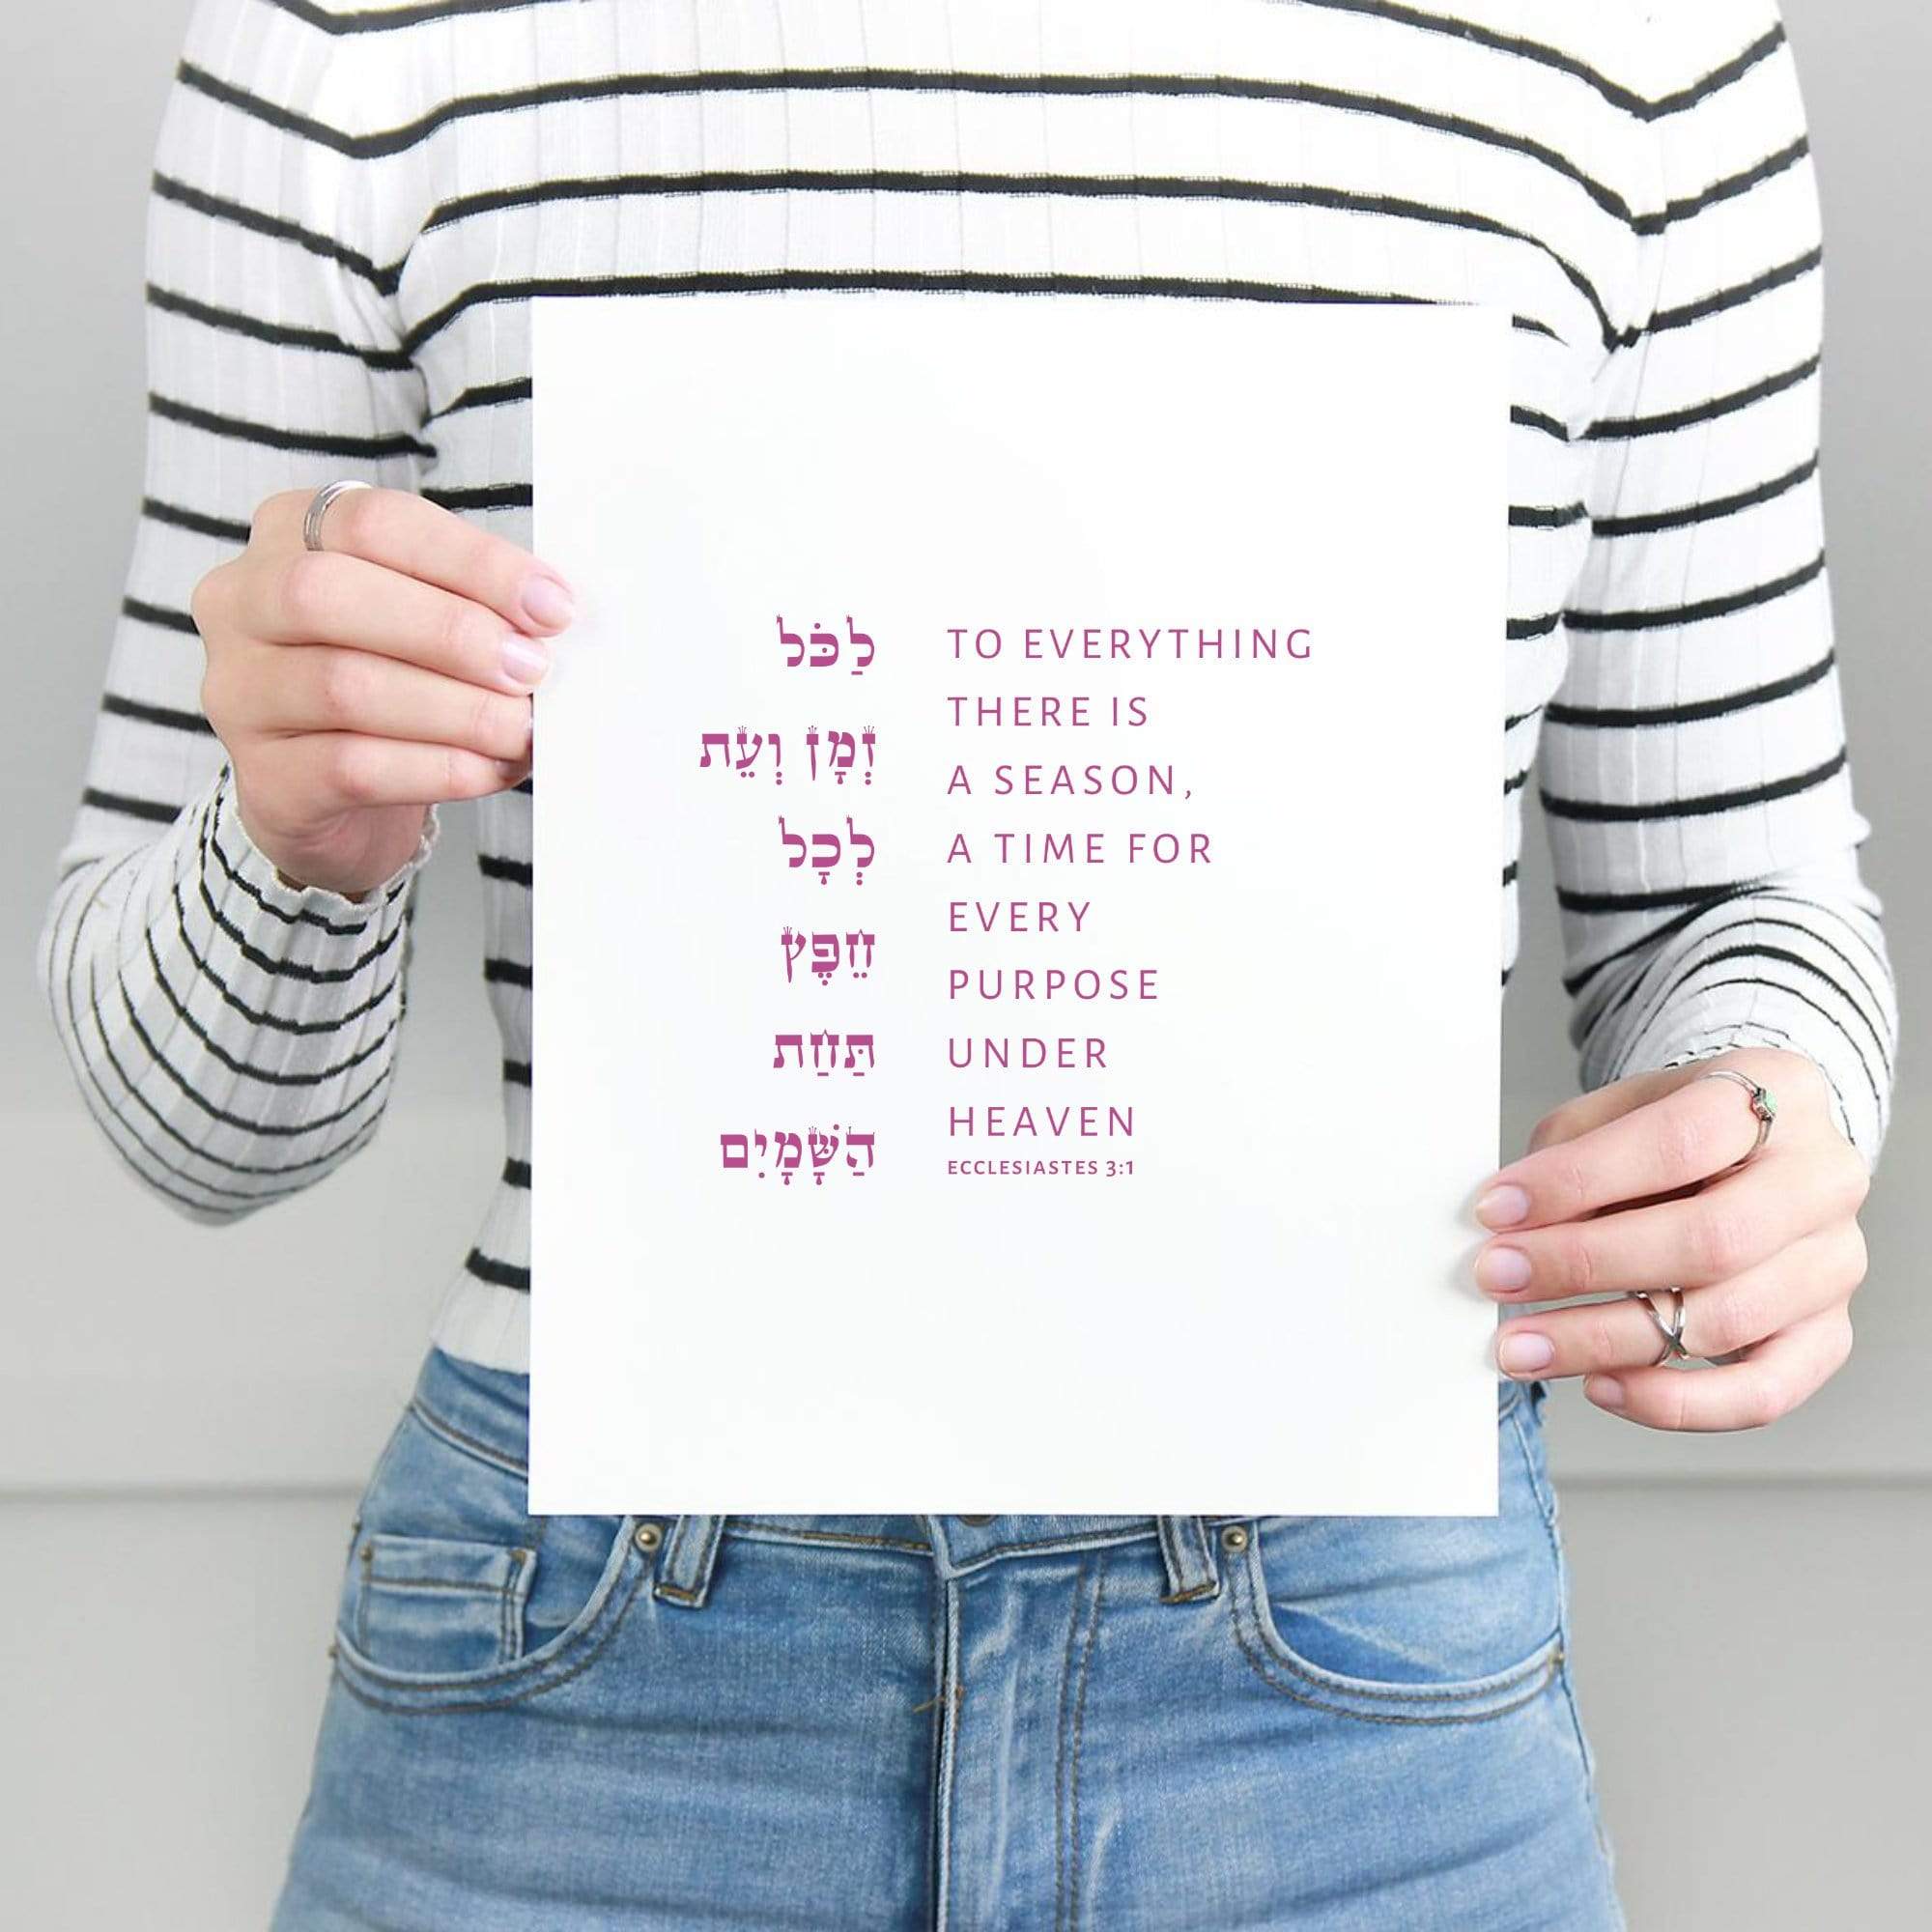 לַכֹּל
זְמָן וְעֵת
לְכָל
חֵפֶץ
תַּחַת
הַשָּׁמָיִם
TO EVERYTHING
THERE IS
A SEASON,
A TIME FOR
EVERY
PURPOSE
UNDER
HEAVEN
ECCLESIASTES 3:1